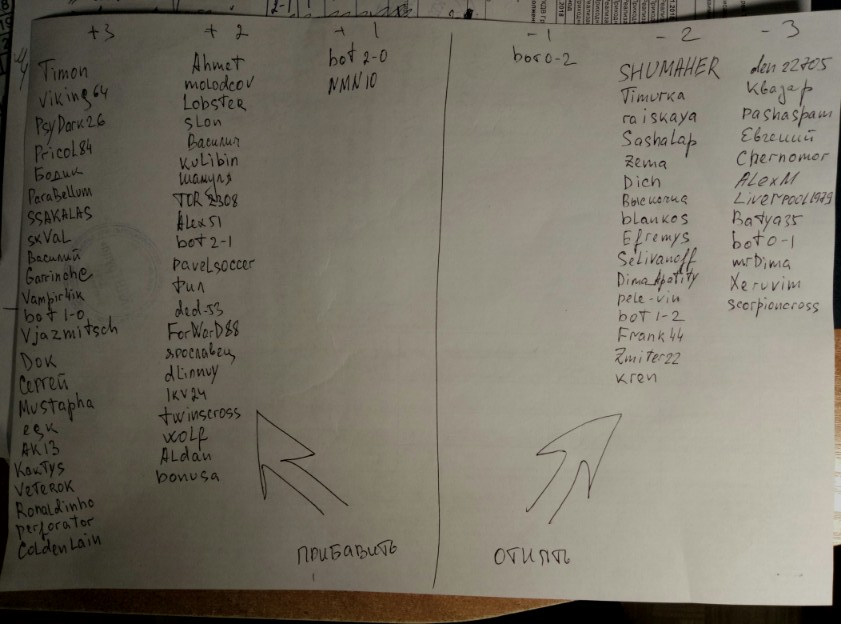 +3
Timon
Viking64
PsyDark26
Pricol84
Бодик
ParaBellum
SSAKALAS
skVaL
Василий
Garrinche
Vampir4ik
bot 1-0
Vjazmitsch
Dok
Сергей
Mustapha
egk
AK13
Kaktys
VeTeROK
Ronaldinho
perforator
ColdenLain
+2
Ahmet
molodcov
Lobster
slon
Василич
kuLibin
шамиля
TOR 2308
Alex51
bot 2-1
pavelsoccer
fил
ded-53
ForWarD88
ярославец
dLinnyy
Ikv24
twinscross
wolf
ALdan
bonusa
+1
bot 2-0
NMN10
ПРИБАВИТЬ
-1
bot 0-2
ОТНЯТЬ
-2
SHUMAHER
Timurka
raiskaya
SashaLap
Zema
Dich
Выскочка
blankos
Efremys
Selivanoff
Dima Apatity
pele-vin
bot 1-2
Frank44
Zmiter22
kren
-3
den22705
Квазар
pashaspam
Евгений
Chernomor
ALexM
LiverpooL1979
Batya35
bot 0-1
mrDima
Xeruvim
scorpioncross